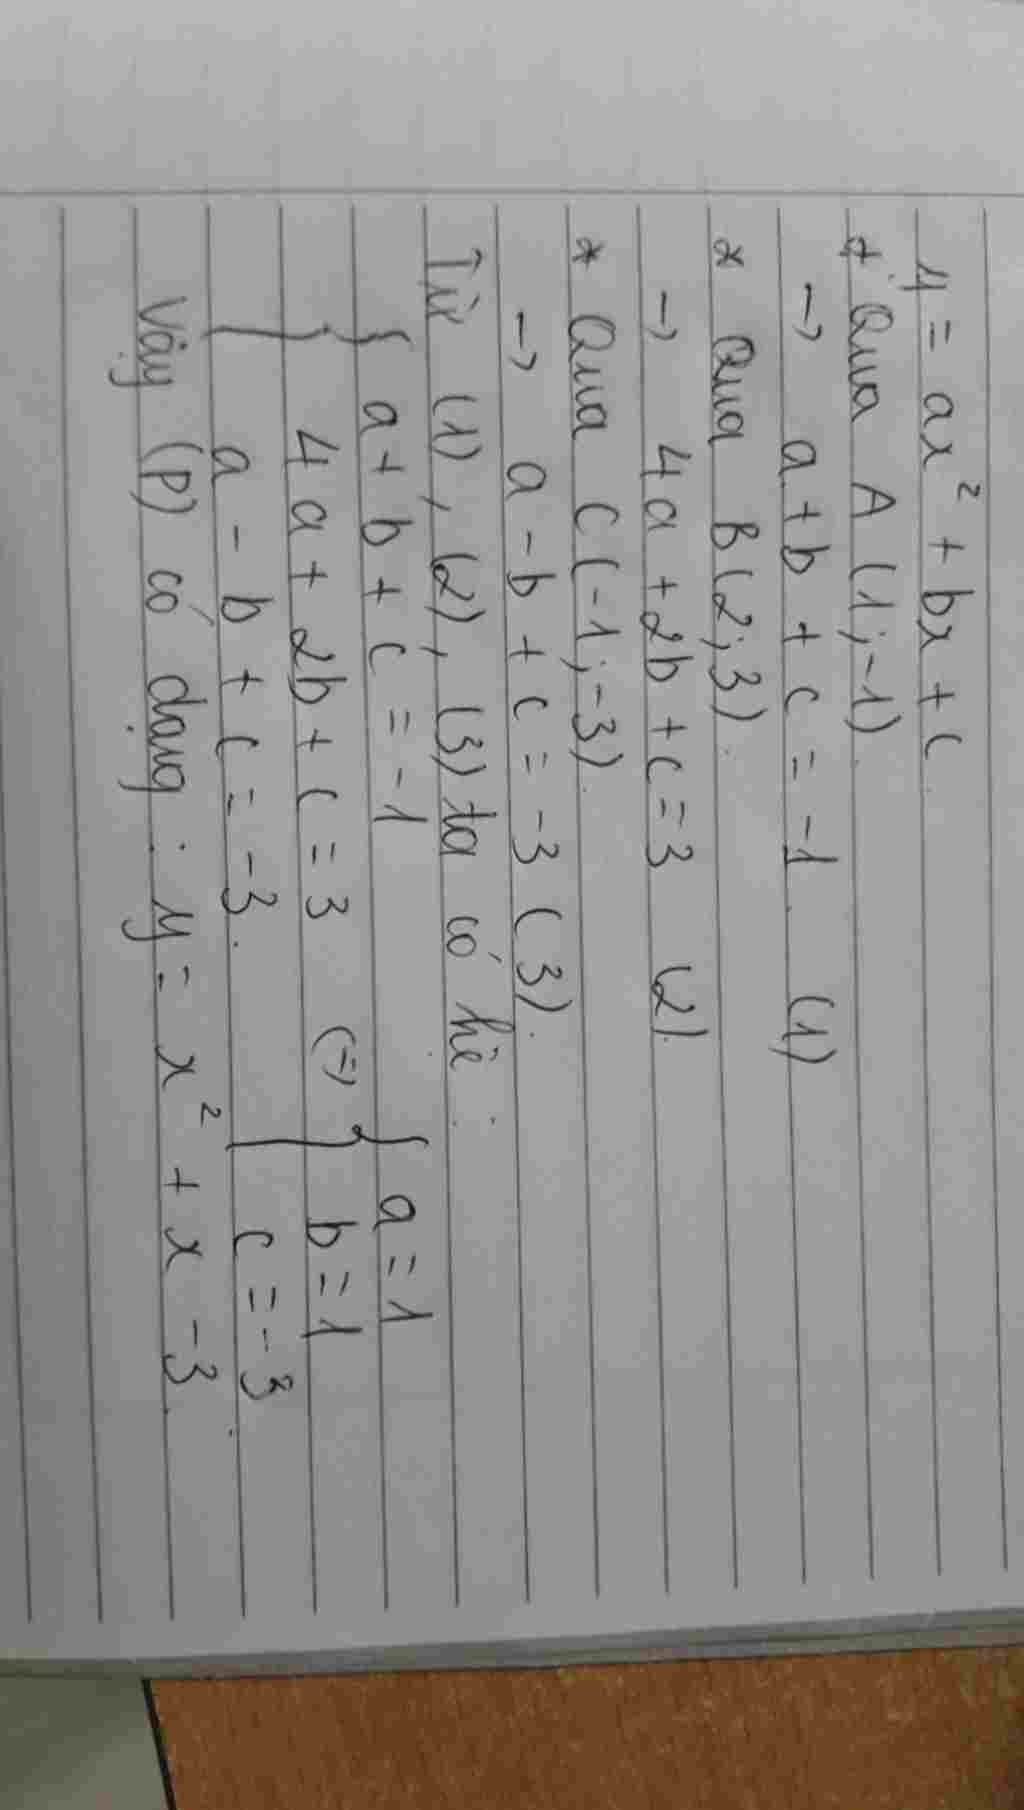 y = ax² + bx + c
* Qua A (1; -1)
→ a + b + c = -1 (1)
* Qua B(2; 3).
→ 4a + 2b + c = 3 (2).
* Qua C(-1; -3)
→ a - b + c = -3 (3).
Từ (1), (2), (3) ta có hệ :
{ a + b + c = -1 { a = 1
4a + 2b + c = 3 (=) b = 1
a - b + c = -3. c = -3
Vậy (P) có dạng : y = x² + x - 3.